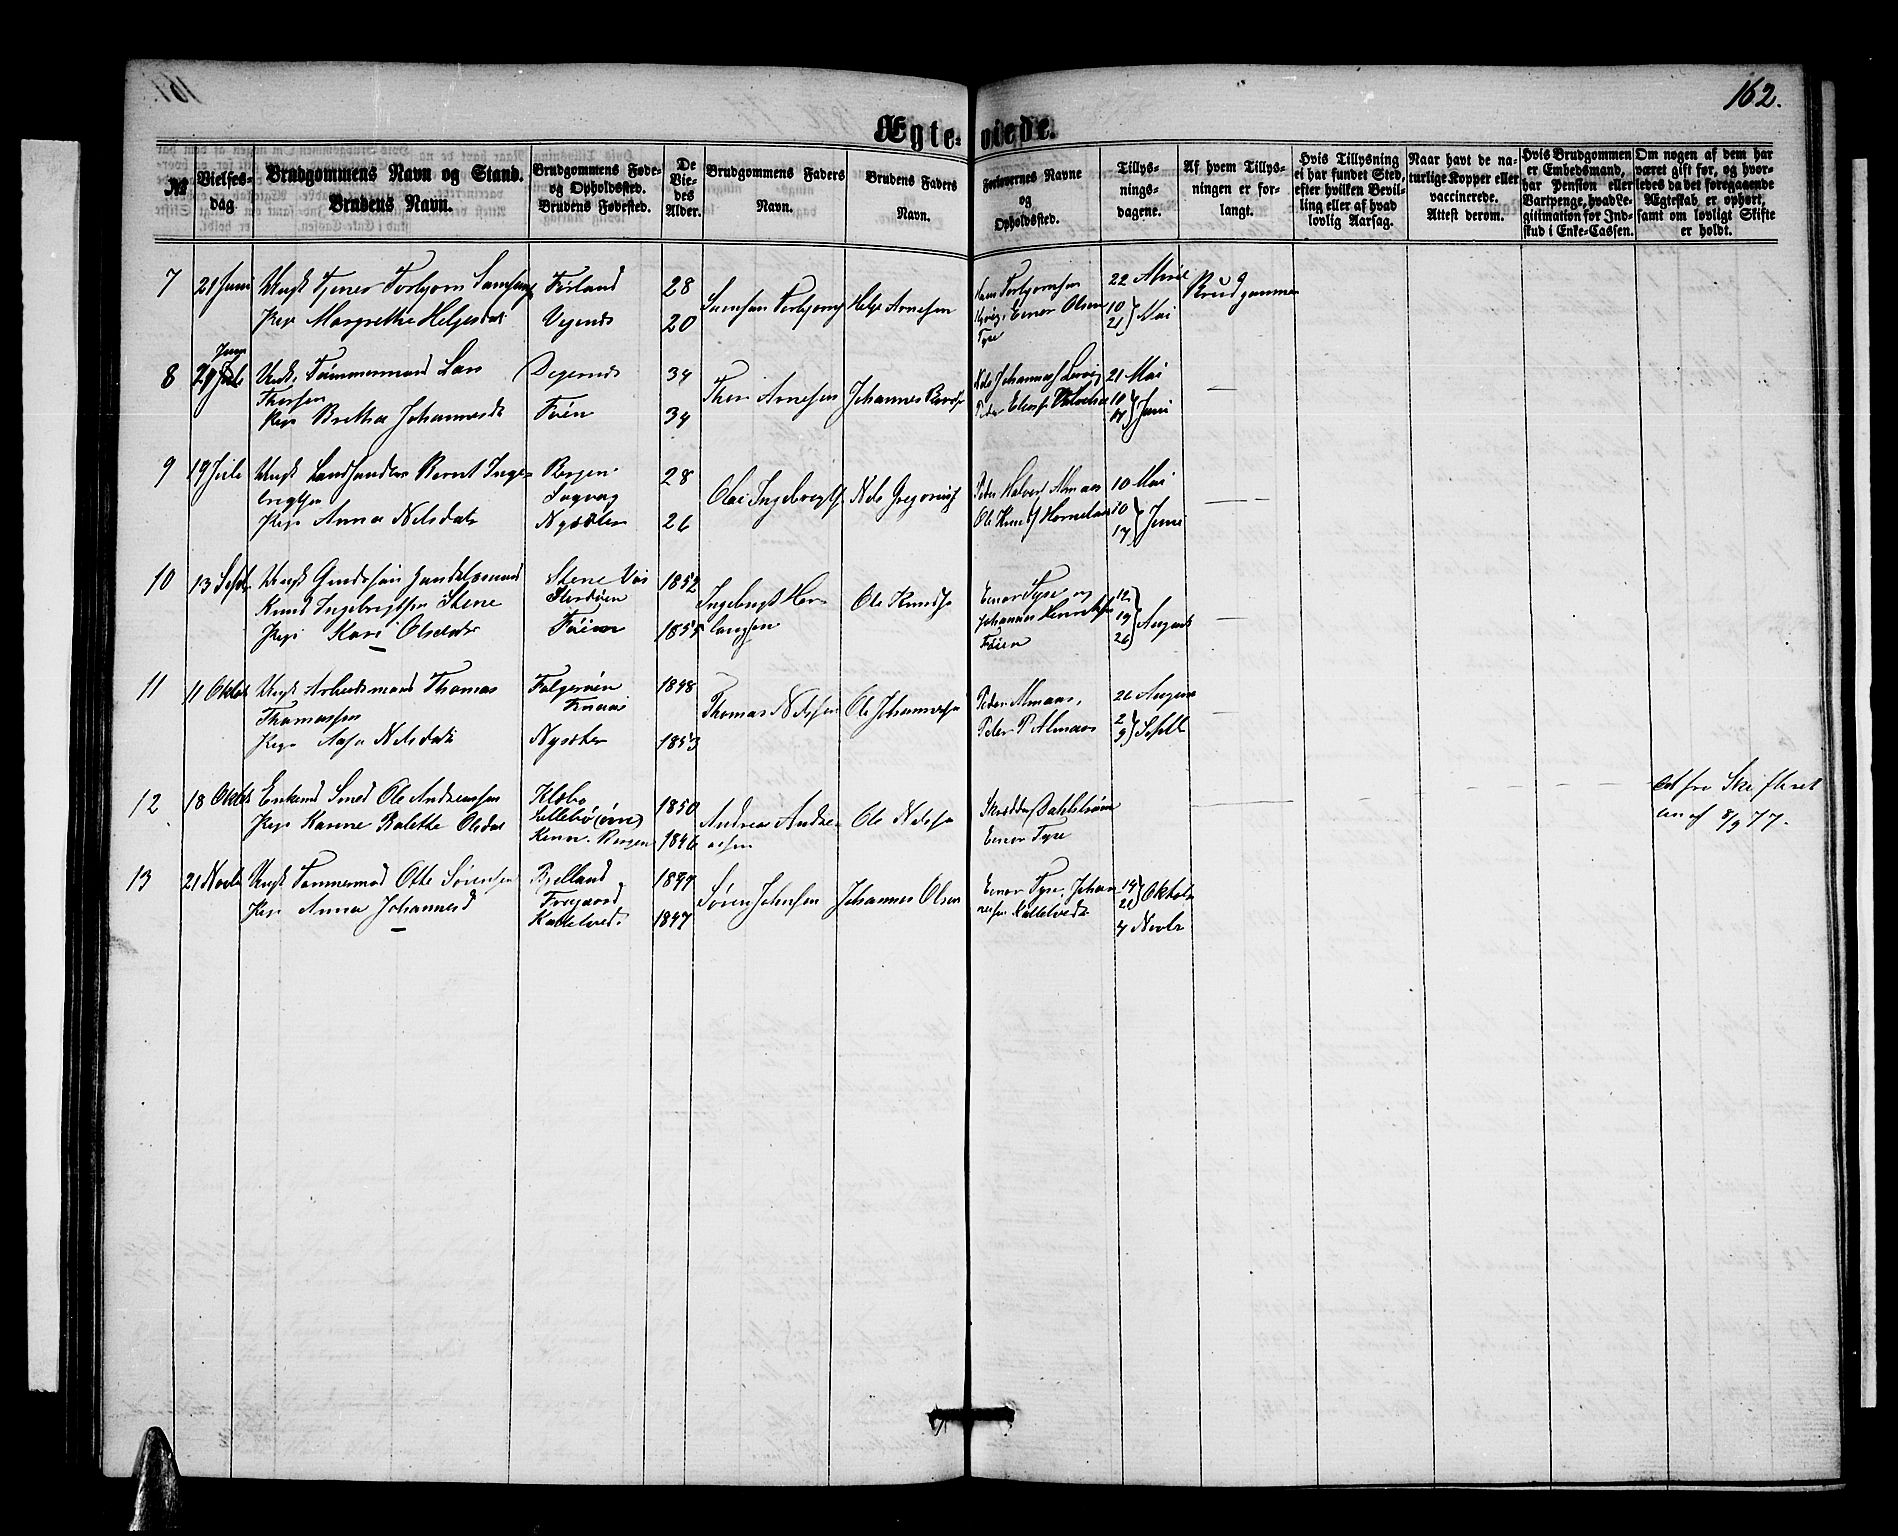 162.
Ægte-viede.
№
Vielses-
dag
Brudgommens Navn og Stand.
Brudens Navn.
Brudgommens Føde-
og Opholdssted.
Brudens Fødested.
De
Vie-
des
Alder.
Brudgommens Faders
Navn.
Brudens Faders
Navn.
Forlovernes Navne
og
Opholdssted.
Tillys-
nings-
dagene.
Af hvem Tillys-
ningen er for-
langt.
Hvis Tillysning
ei har fundet Sted,
efter hvilken Bevil-
ling eller af hvad
lovlig Aarsag.
Naar havt de na-
turlige Kopper eller
vaccinerede.
Attest derom.
Hvis Brudgommen
er Embedsmand,
har Pension eller
Vartpenge, hvad Le-
gitimation for Ind-
skud i Enke-Cassen.
Om nogen af dem har
været gift før, og hvor-
ledes da det foregaaende
Ægteskab er ophørt,
samt om lovligt Skifte
er holdt.
7
21 Juni
Ungk Tjener Torbjørn Samsons
Pige Margrethe Helgesdat
Førland
Vejernes
28
20
Samson Torbjørns
Helje Arnesen
Hans Torbjørnsen
Einer Olsen
Tyse
22 April
10
21 } Mai
Brudgommen
8
29 Juni
Ungk, Tømmermand Lars
Thorsen
Pige Bretha Johannesdt
Vejernes
Føien
34
34
Thor Arnesen
Johannes
Nils Johannes
Peder
21 Mai
10
17 } Juni
9
19 Juli
Ungk Landhandler Bernt Inge-
brigtsen
Pige Anna Nilsdatr
Bergen
Sagvag
Nysæter
28
26
Olai Ingebrigts
Nils Gregorius
Peder Halvors Almaas
Ole Knuds Hornelan
10 Mai
10
17 } Juni
10
13 Septr
Ungk Gaardsøn Handelsmand
Knud Ingebrigtsen Stene
Pige Kari Olsdatr
Stene
Storøen
Føien
1852
1855
Ingebrigt Her-
langsen
Ole Knuds
Einar Tyse og
Johannes
Føien
12
19
26 } August
11
11 Oktob
Ungk Arbeidsmand Thomas
Thomassen
Pige Nilsdatr
Nysæter
1848
1853
Thomas Nilsen
Ole Johannesen
Peder Almaas,
Peder P. Almaas
26 August
2
9 } Septb
12
18 Oktob
Enkemd Smed Ole Andreassen
Pige Karine Olsdat
Klæbo
Lillebø
Bergen
1850
1846
Andreas Andre-
assen
Ole Nilsen
Skrædder Dahlstrøm
Einar Tyse
Att fra Skifteret
ten af 8/9 77.
13
21 Novbr
Ungk Tømmermd Otte Sørensen
Pige Anna Johannesd
Bjelland
Kattetveds
1847
1847
Søren Johnsen
Johannes Olsen
Einar Tyse, Johan-
nesen Kattetvedt
14
21 } Oktobr
4 Novbr